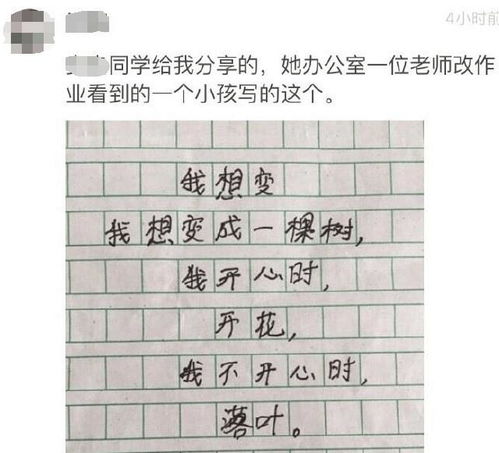 4小时前
同学给我分享的，她办公室一位老师改作
业看到的一个小孩写的这个。
我想变
我想变成一棵树，
我开心时，
开花，
我不开心时，
落叶。